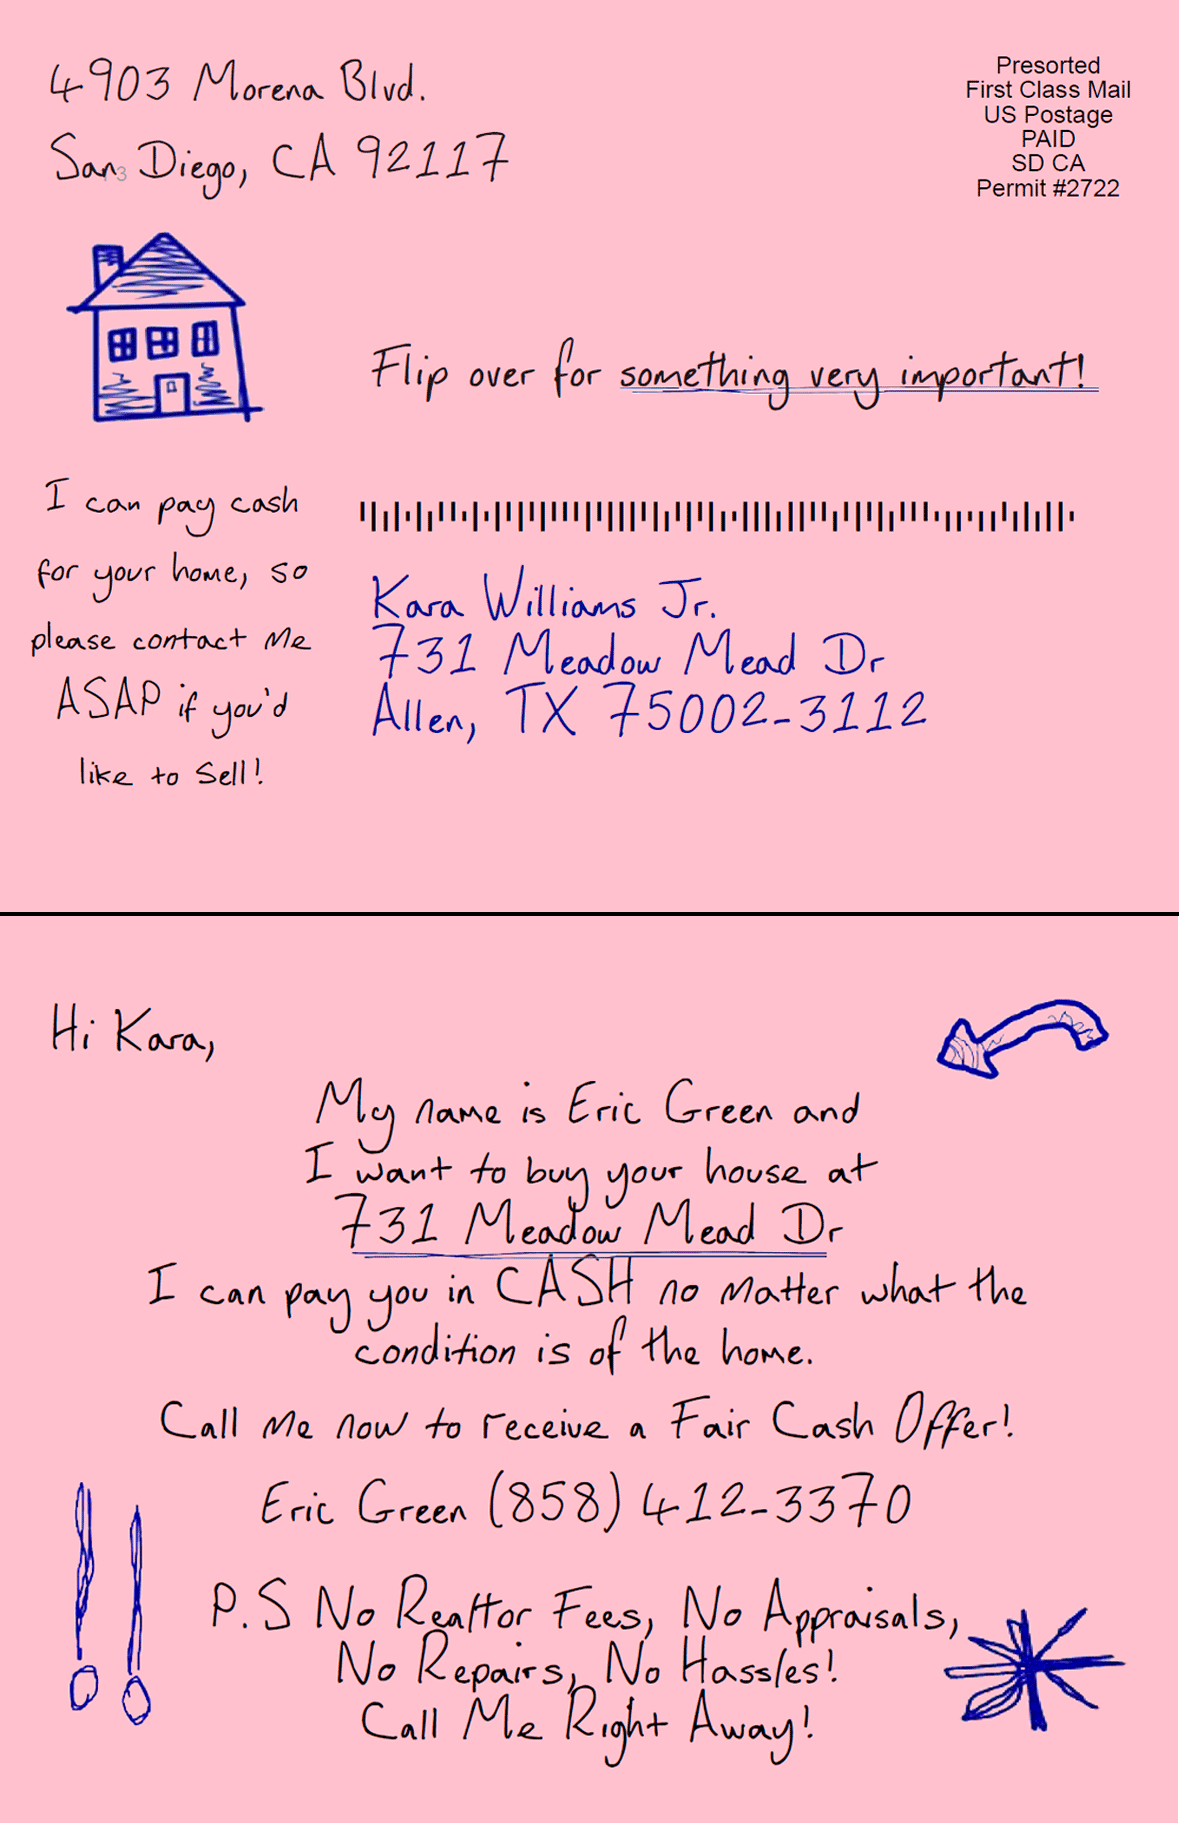 4903 Morena Blvd.
San Diego, CA 92117
3
Presorted
First Class Mail
US Postage
PAID
SD CA
Permit #2722
Flip over for something very important!
I can pay cash
for your home, so
please contact Me
ASAP if you'd
like to Sell!
Kara Williams Jr.
731 Meadow Mead Dr
Allen, TX 75002-3112
Hi Kara,
My name is Eric Green and
I want to buy your house at
731 Meadow Mead Dr
I can pay you in CASH no matter what the
condition is of the home.
Call Me now to receive a Fair Cash Offer!
Eric Green (858) 412-3370
P.S No Realtor Fees, No Appraisals,
No Repairs, No Hassles!
Call Me Right Away!